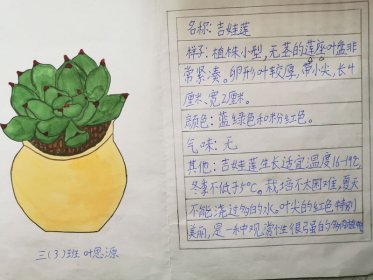 名称:吉娃莲
样子:植株小型,无茎的莲座叶盘非
常紧凑。卵形叶较厚,带小尖,长4
厘米、宽2厘米。
颜色:蓝绿色和粉红色。
气味:无
其他:吉娃莲生长适宜温度16-19℃
冬季不低于5℃。栽培不太困难,夏天
不能浇过多的水。叶尖的红色特别
美丽,是一种观赏性很强的多肉植物
三(3)班 叶思源